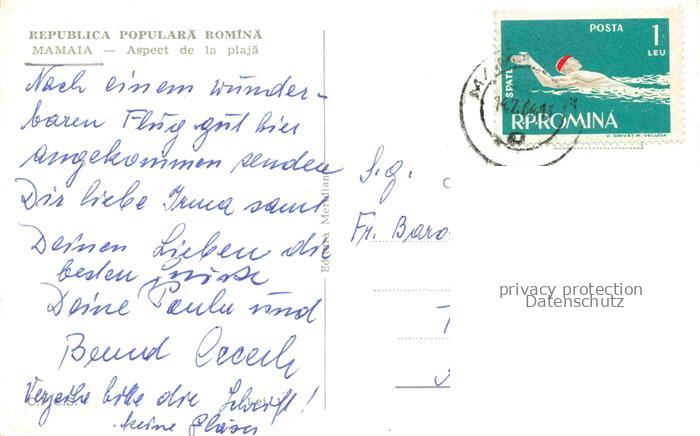 REPUBLICA POPULARĂ ROMÎNĂ
MAMAIA — Aspect de la plajă
Nach einem wunder-
baren Flug gut hier
angekommen senden
Dir liebe Irma samt
Deinen Lieben die
besten Grüße
Deine Paula und
Bernd
Verzeihe bitte die Schrift!
keine Gläser
Editura Meridiane
S. g.
Fr. Baro
POSTA
1
LEU
SPATE
RPROMINA
V. GRIVAT, R. VELUDA
privacy protection
Datenschutz